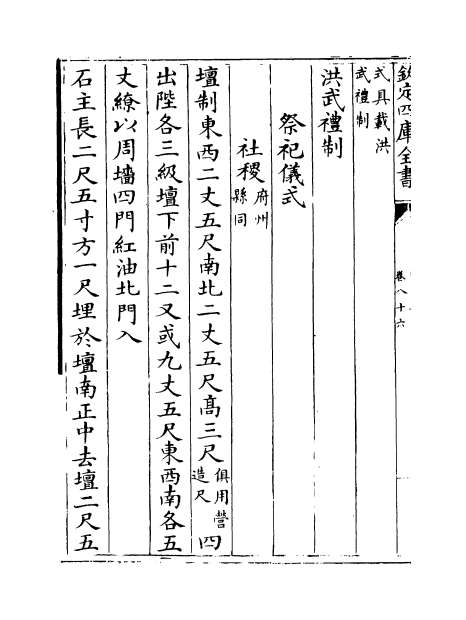 欽定四庫全書
卷八十六
式具載洪
武禮制
洪武禮制
祭祀儀式
社稷府州縣同
壇制東西二丈五尺南北二丈五尺高三尺俱用營造尺四
出陛各三級壇下前十二又或九丈五尺東西南各五
丈繚以周墻四門紅油北門入
石主長二尺五寸方一尺埋於壇南正中去壇二尺五